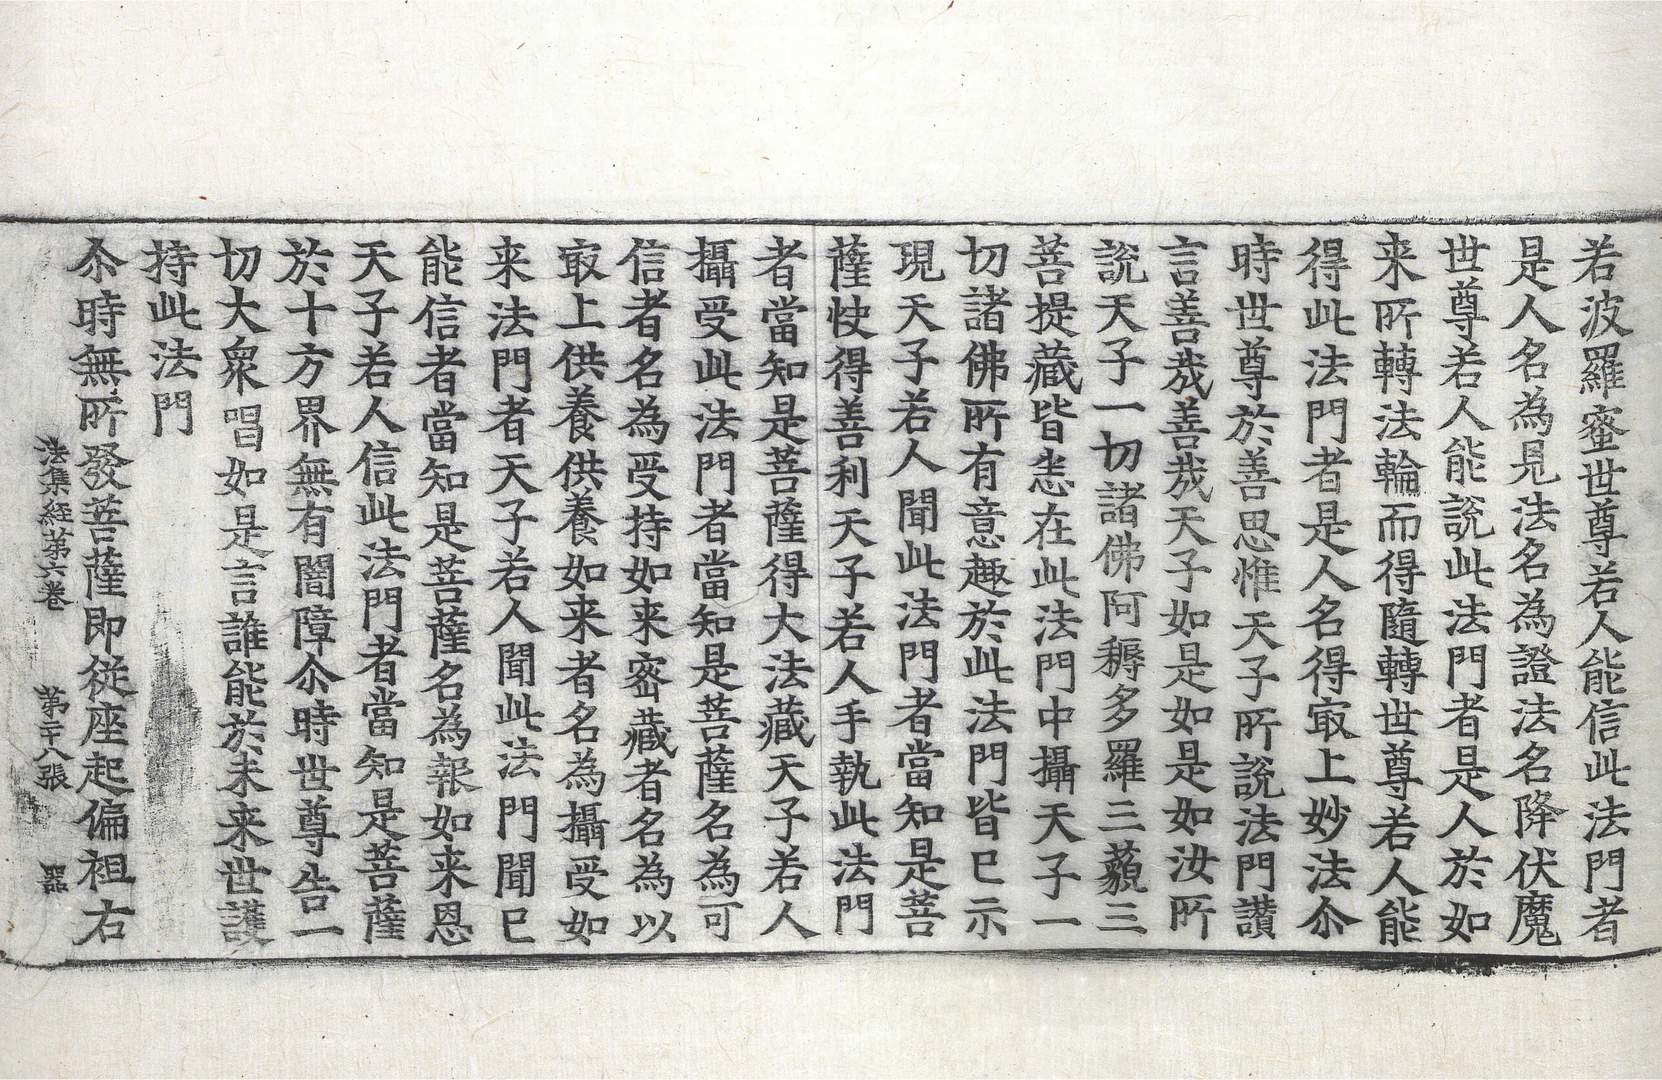 若波羅蜜世尊若人能信此法門者
是人名為見法名為證法名降伏魔
世尊若人能說此法門者是人於如
来所轉法輪而得隨轉世尊若人能
得此法門者是人名得㝡上妙法尒
時世尊於善思惟天子所說法門讚
言善哉善哉天子如是如是如汝所
說天子一切諸佛阿耨多羅三藐三
菩提藏皆悉在此法門中攝天子一
切諸佛所有意趣於此法門皆已示
現天子若人聞此法門者當知是菩
薩快得善利天子若人手執此法門
者當知是菩薩得大法藏天子若人
攝受此法門者當知是菩薩名為可
信者名為受持如来密藏者名為以
㝡上供養供養如来者名為攝受如
来法門者天子若人聞此法門聞已
能信者當知是菩薩名為報如来恩
天子若人信此法門者當知是菩薩
於十方界無有闇障尒時世尊告一
切大衆唱如是言誰能於未来世護
持此法門
尒時無所發菩薩即從座起偏袒右
法集経第六卷 第二十八張 器